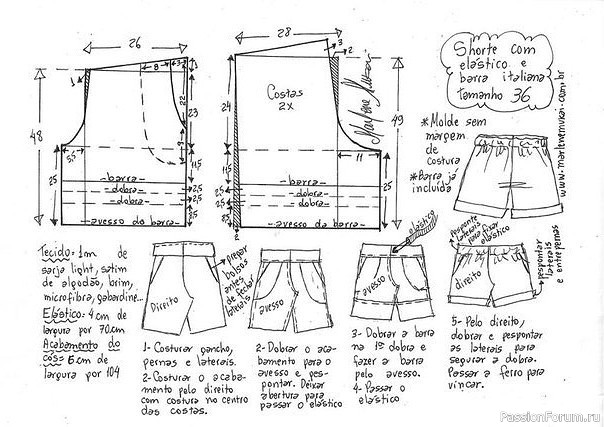 26
28
Shorte com
elástico e
barra italiana
tamanho 36
www.marlenemukai.com.br
Marlene Mukai
3
8
3
3
1
22
23
48
5,5
25
11,5
2,5
2,5
-barra-
-dobra-
-dobra-
-avesso da barra-
3
2
24
Costas
2X
49
25
11
11,5
2,5
2,5
8,5
2
-barra-
-dobra-
-dobra-
-avesso da barra-
*Molde sem
margem
de
costura
*Barra já
incluída
Tecido: 1m de
sarja light, satim
de algodão, brim,
microfibra, gabardine...
Elástico: 4 cm de
largura por 70cm
Acabamento do
cós: 6 cm de
largura por 104
Direito
pregar
bolsos
antes
de fechar
laterais
avesso
avesso
elástico
pesponte
laterais
para fixar
elástico
direito
pespontar
laterais
e entrepernas
1- Costurar gancho,
pernas e laterais.
2- Costurar o acaba-
mento pelo direito
com costura no centro
das costas.
2- Dobrar o aca-
bamento para o
avesso e pes-
pontar. Deixar
abertura para
passar o elástico
3- Dobrar a barra
na 1ª dobra e
fazer a barra
pelo avesso.
4- Passar o
elástico
5- Pelo direito,
dobrar e pespontar
as laterais para
segurar a dobra.
Passar a ferro para
vincar.
PassionForum.ru